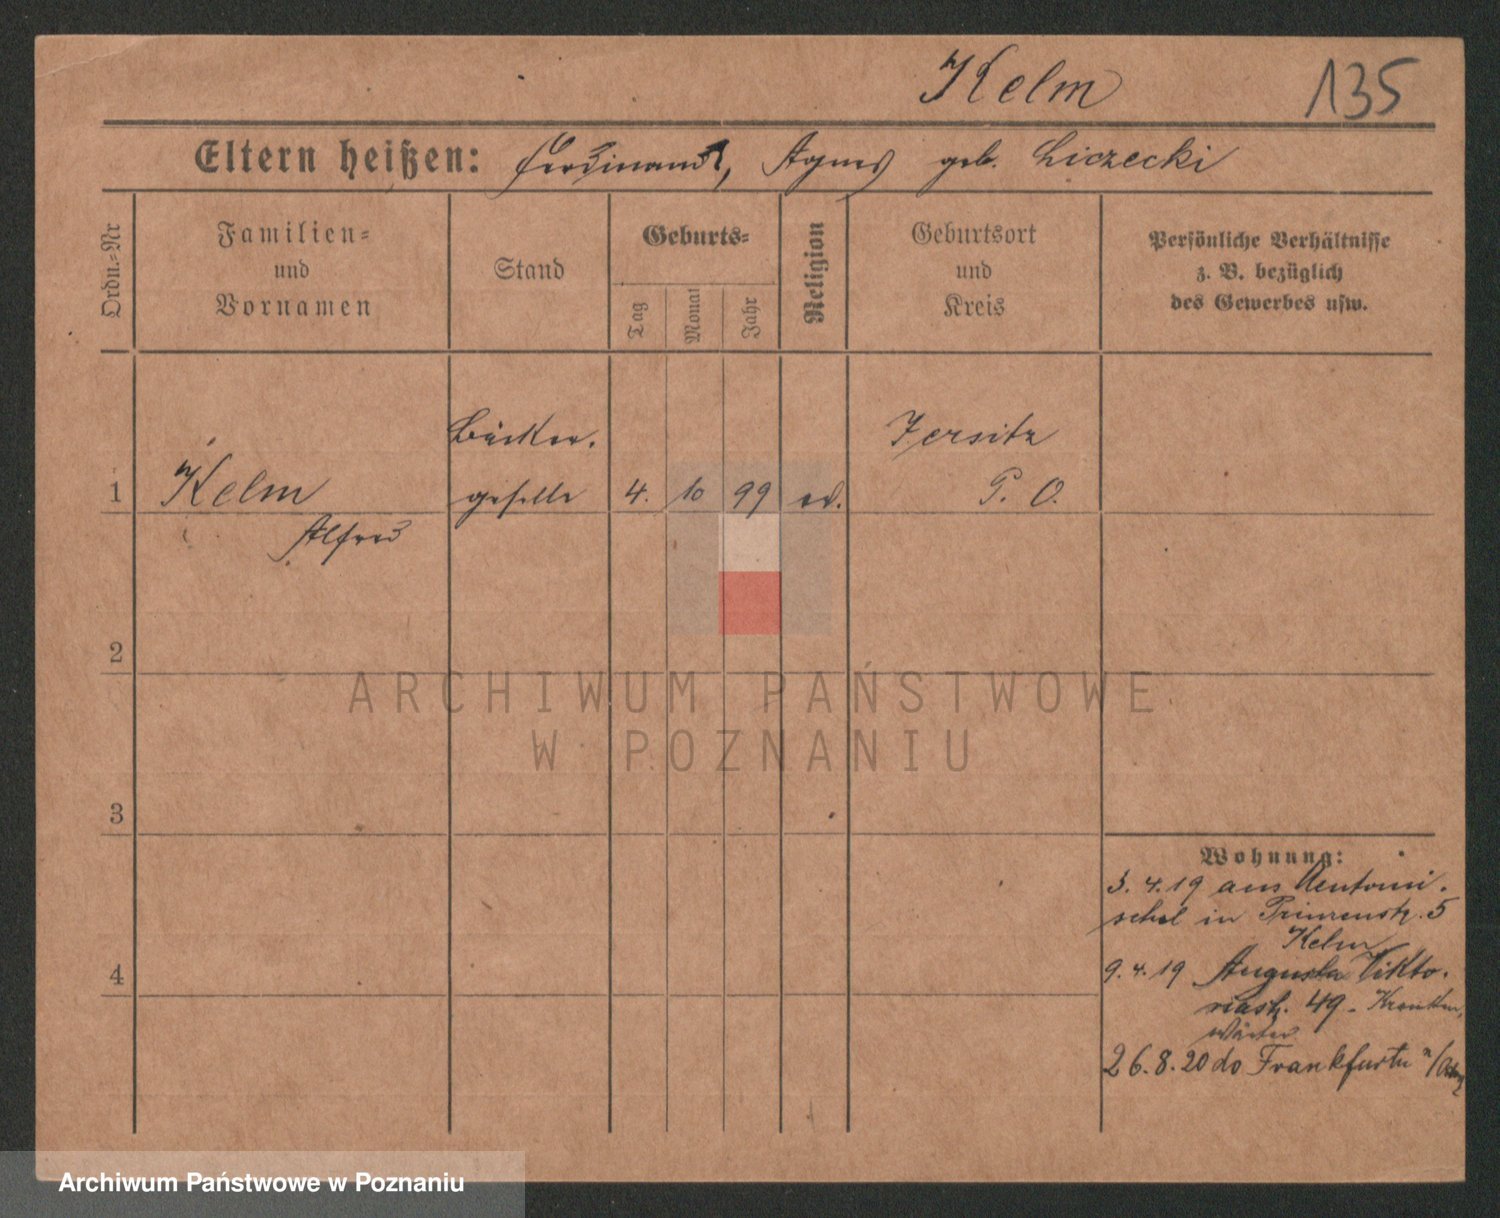 Kelm 135
Eltern heißen: Ferdinand, Agnes geb. Liczecki
Ordn.-Nr
Familien-
und
Vornamen
Stand
Geburts-
Tag
Monat
Jahr
Religion
Geburtsort
und
Kreis
Persönliche Verhältnisse
z. B. bezüglich
des Gewerbes usw.
Bäcker- Jersitz
1 Kelm geselle 4. 10 99 ev. P. O.
Alfred
2
ARCHIWUM PAŃSTWOWE
W POZNANIU
3
Wohnung:
3. 4. 19 aus Neutomi-
schel in Prinzenstr. 5
Kelm
4
9. 4. 19 Augusta Vikto-
riastr. 49 - Kranken
wärter
26. 8. 20 do Frankfurtu n/
Archiwum Państwowe w Poznaniu